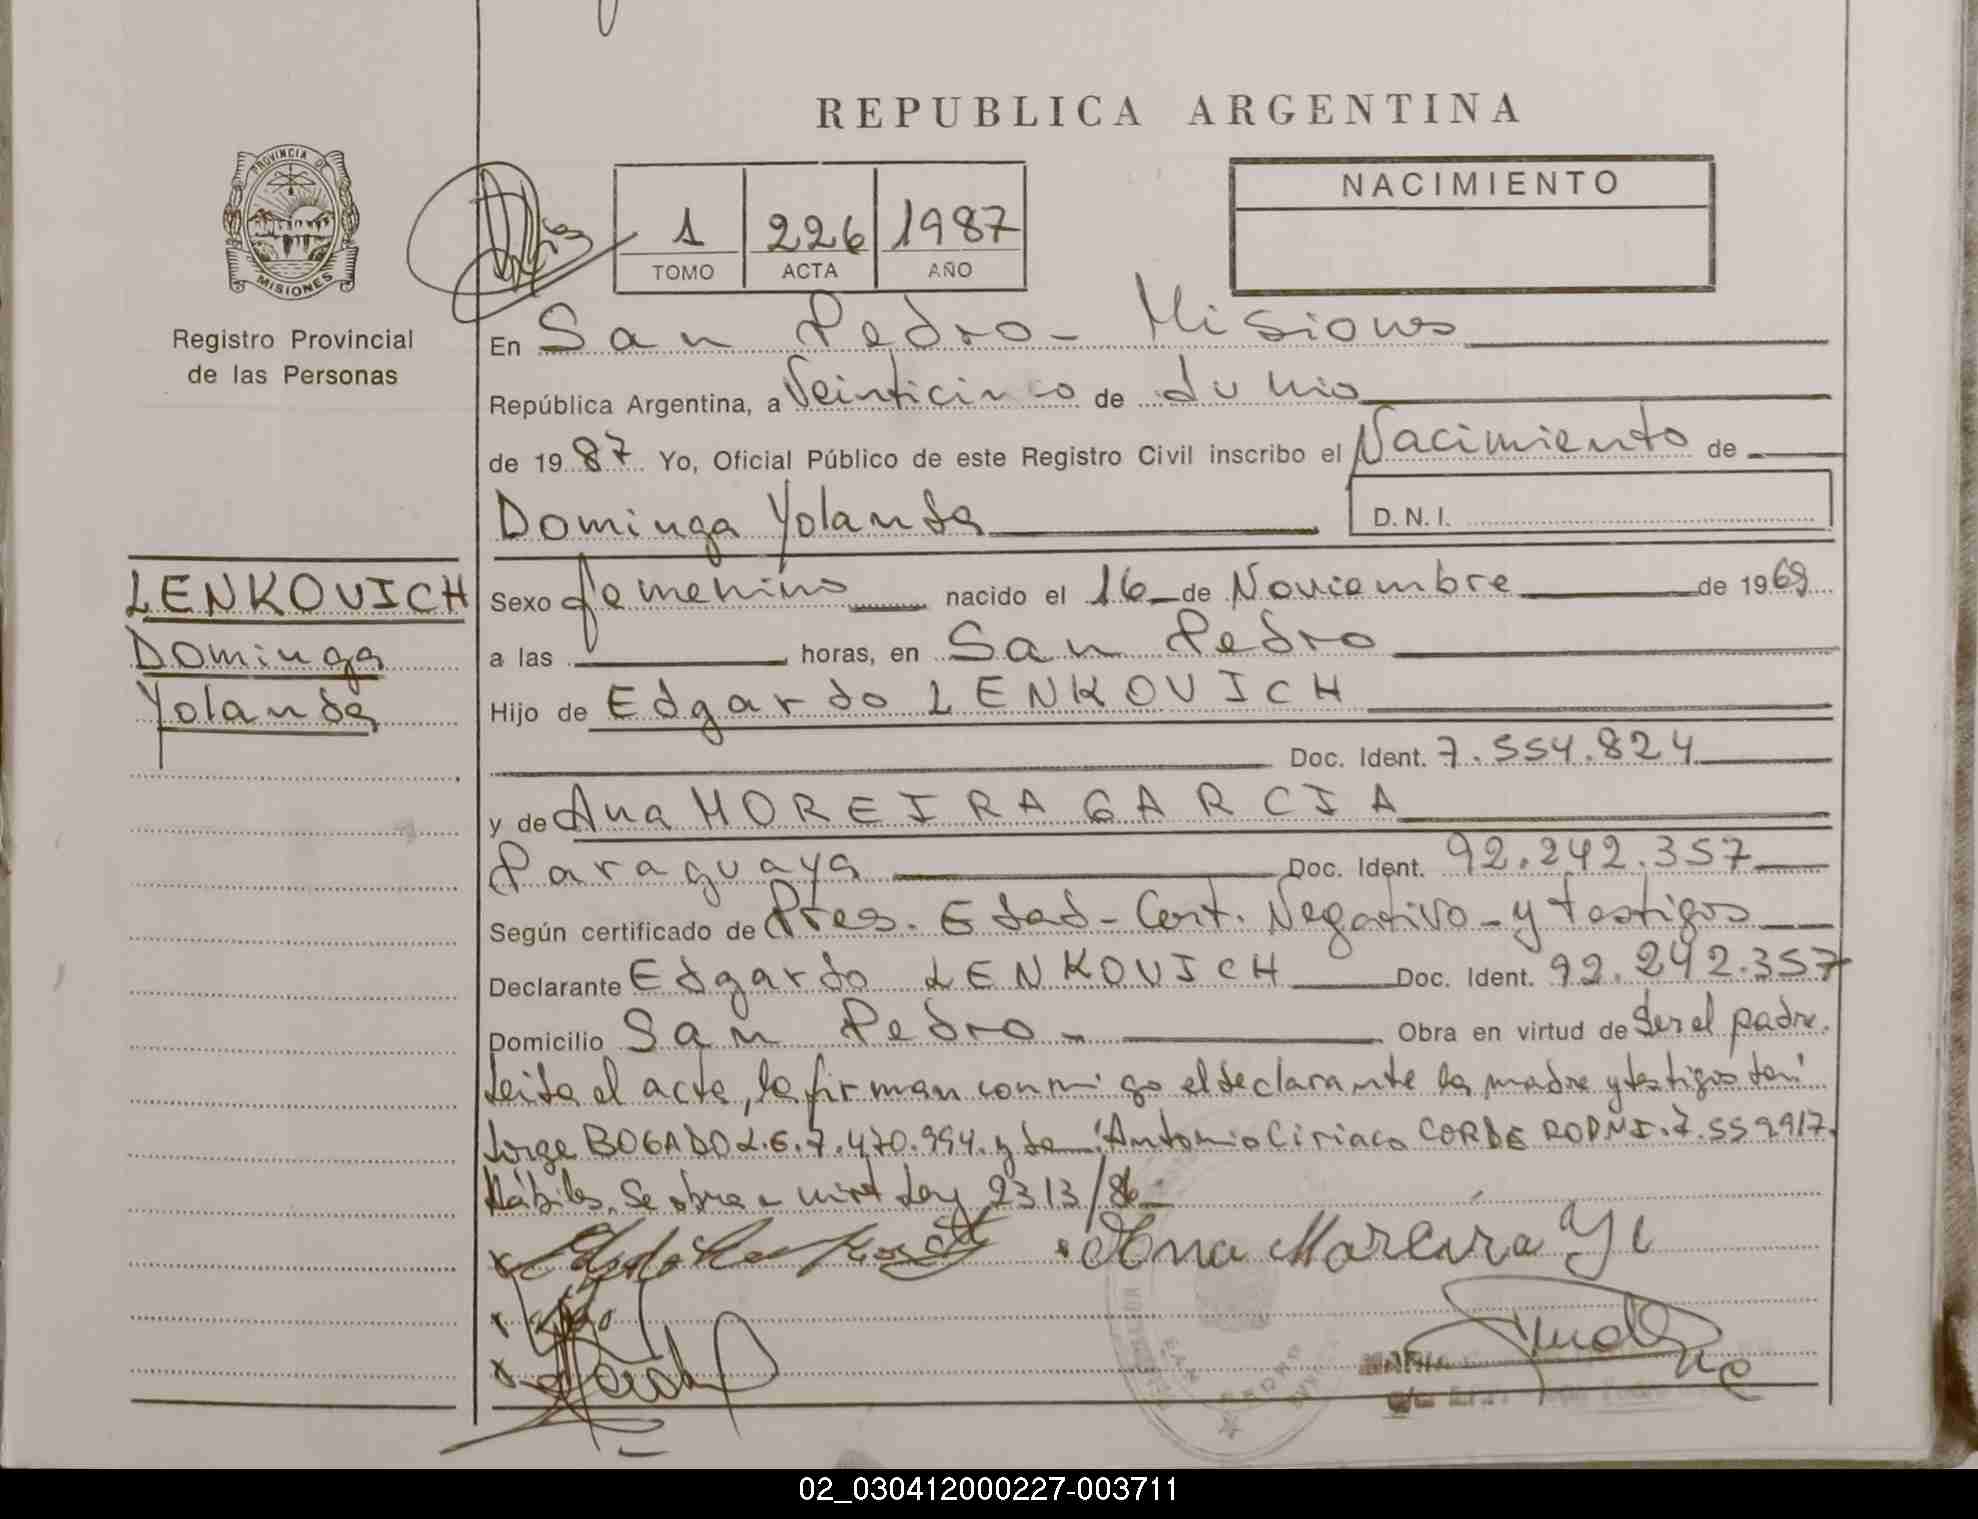 REPUBLICA ARGENTINA
PROVINCIA DE MISIONES
Registro Provincial
de las Personas
1 226 1987
TOMO ACTA AÑO
NACIMIENTO
En San Pedro - Misiones
República Argentina, a Veinticinco de Junio
de 1987 Yo, Oficial Público de este Registro Civil inscribo el Nacimiento de
Dominga Yolanda
D.N.I.
LENKOVICH
Dominga
Yolanda
Sexo femenino nacido el 16 de Noviembre de 1969
a las horas, en San Pedro
Hijo de Edgardo LENKOVICH
Doc. Ident. 7.554.824
y de Ana MOREIRA GARCIA
Paraguaya Doc. Ident. 92.242.357
Según certificado de Pres. Edad - Cert. Negativo - y testigos
Declarante Edgardo LENKOVICH Doc. Ident. 92.242.357
Domicilio San Pedro - Obra en virtud de Ser el padre.
Leida el acta, la firman conmigo el declarante la madre y testigos
Jorge BOGADO L.E. 7.470.994. y Antonio Ciriaco CORDERO D.N.I. 7.559917.
Hábiles. Se obra Ley 2313/86
Ana Moreira
02_030412000227-003711